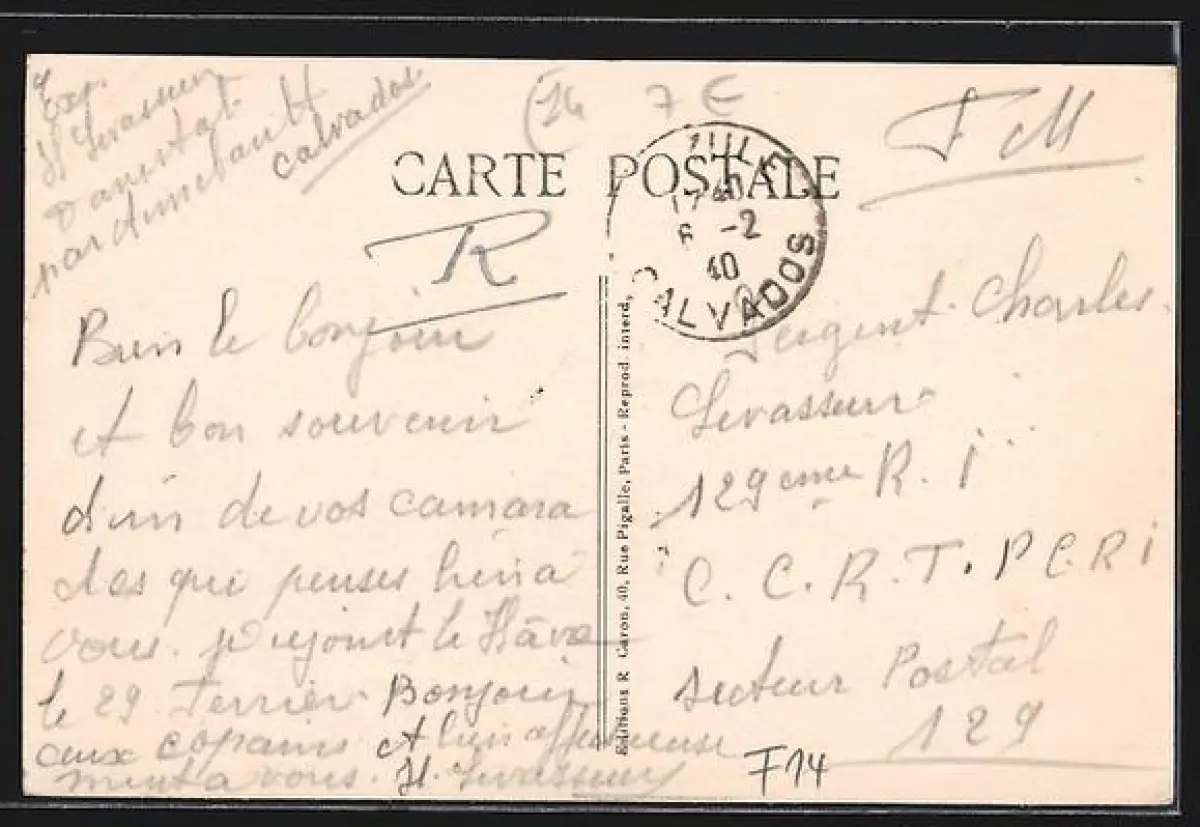 Exp.
H Levasseur
Danestal
par Annebault
Calvados
(14
7 E
F M
CARTE POSTALE
R
17 40
6 -2
40
CALVADOS
Bien le bonjour
et bon souvenir
d'un de vos camara
des que penses bien a
vous. je rejoint le Hâvre
le 29 Ferrier Bonjour
aux copains et bien affectueuse
ment a vous. H. Levasseur
Editions R Caron, 40, Rue Pigalle, Paris - Reprod interd.
Sergent Charles
Levasseur
129eme R. I
C. C. R. T. P C R I
secteur Postal
129
F14